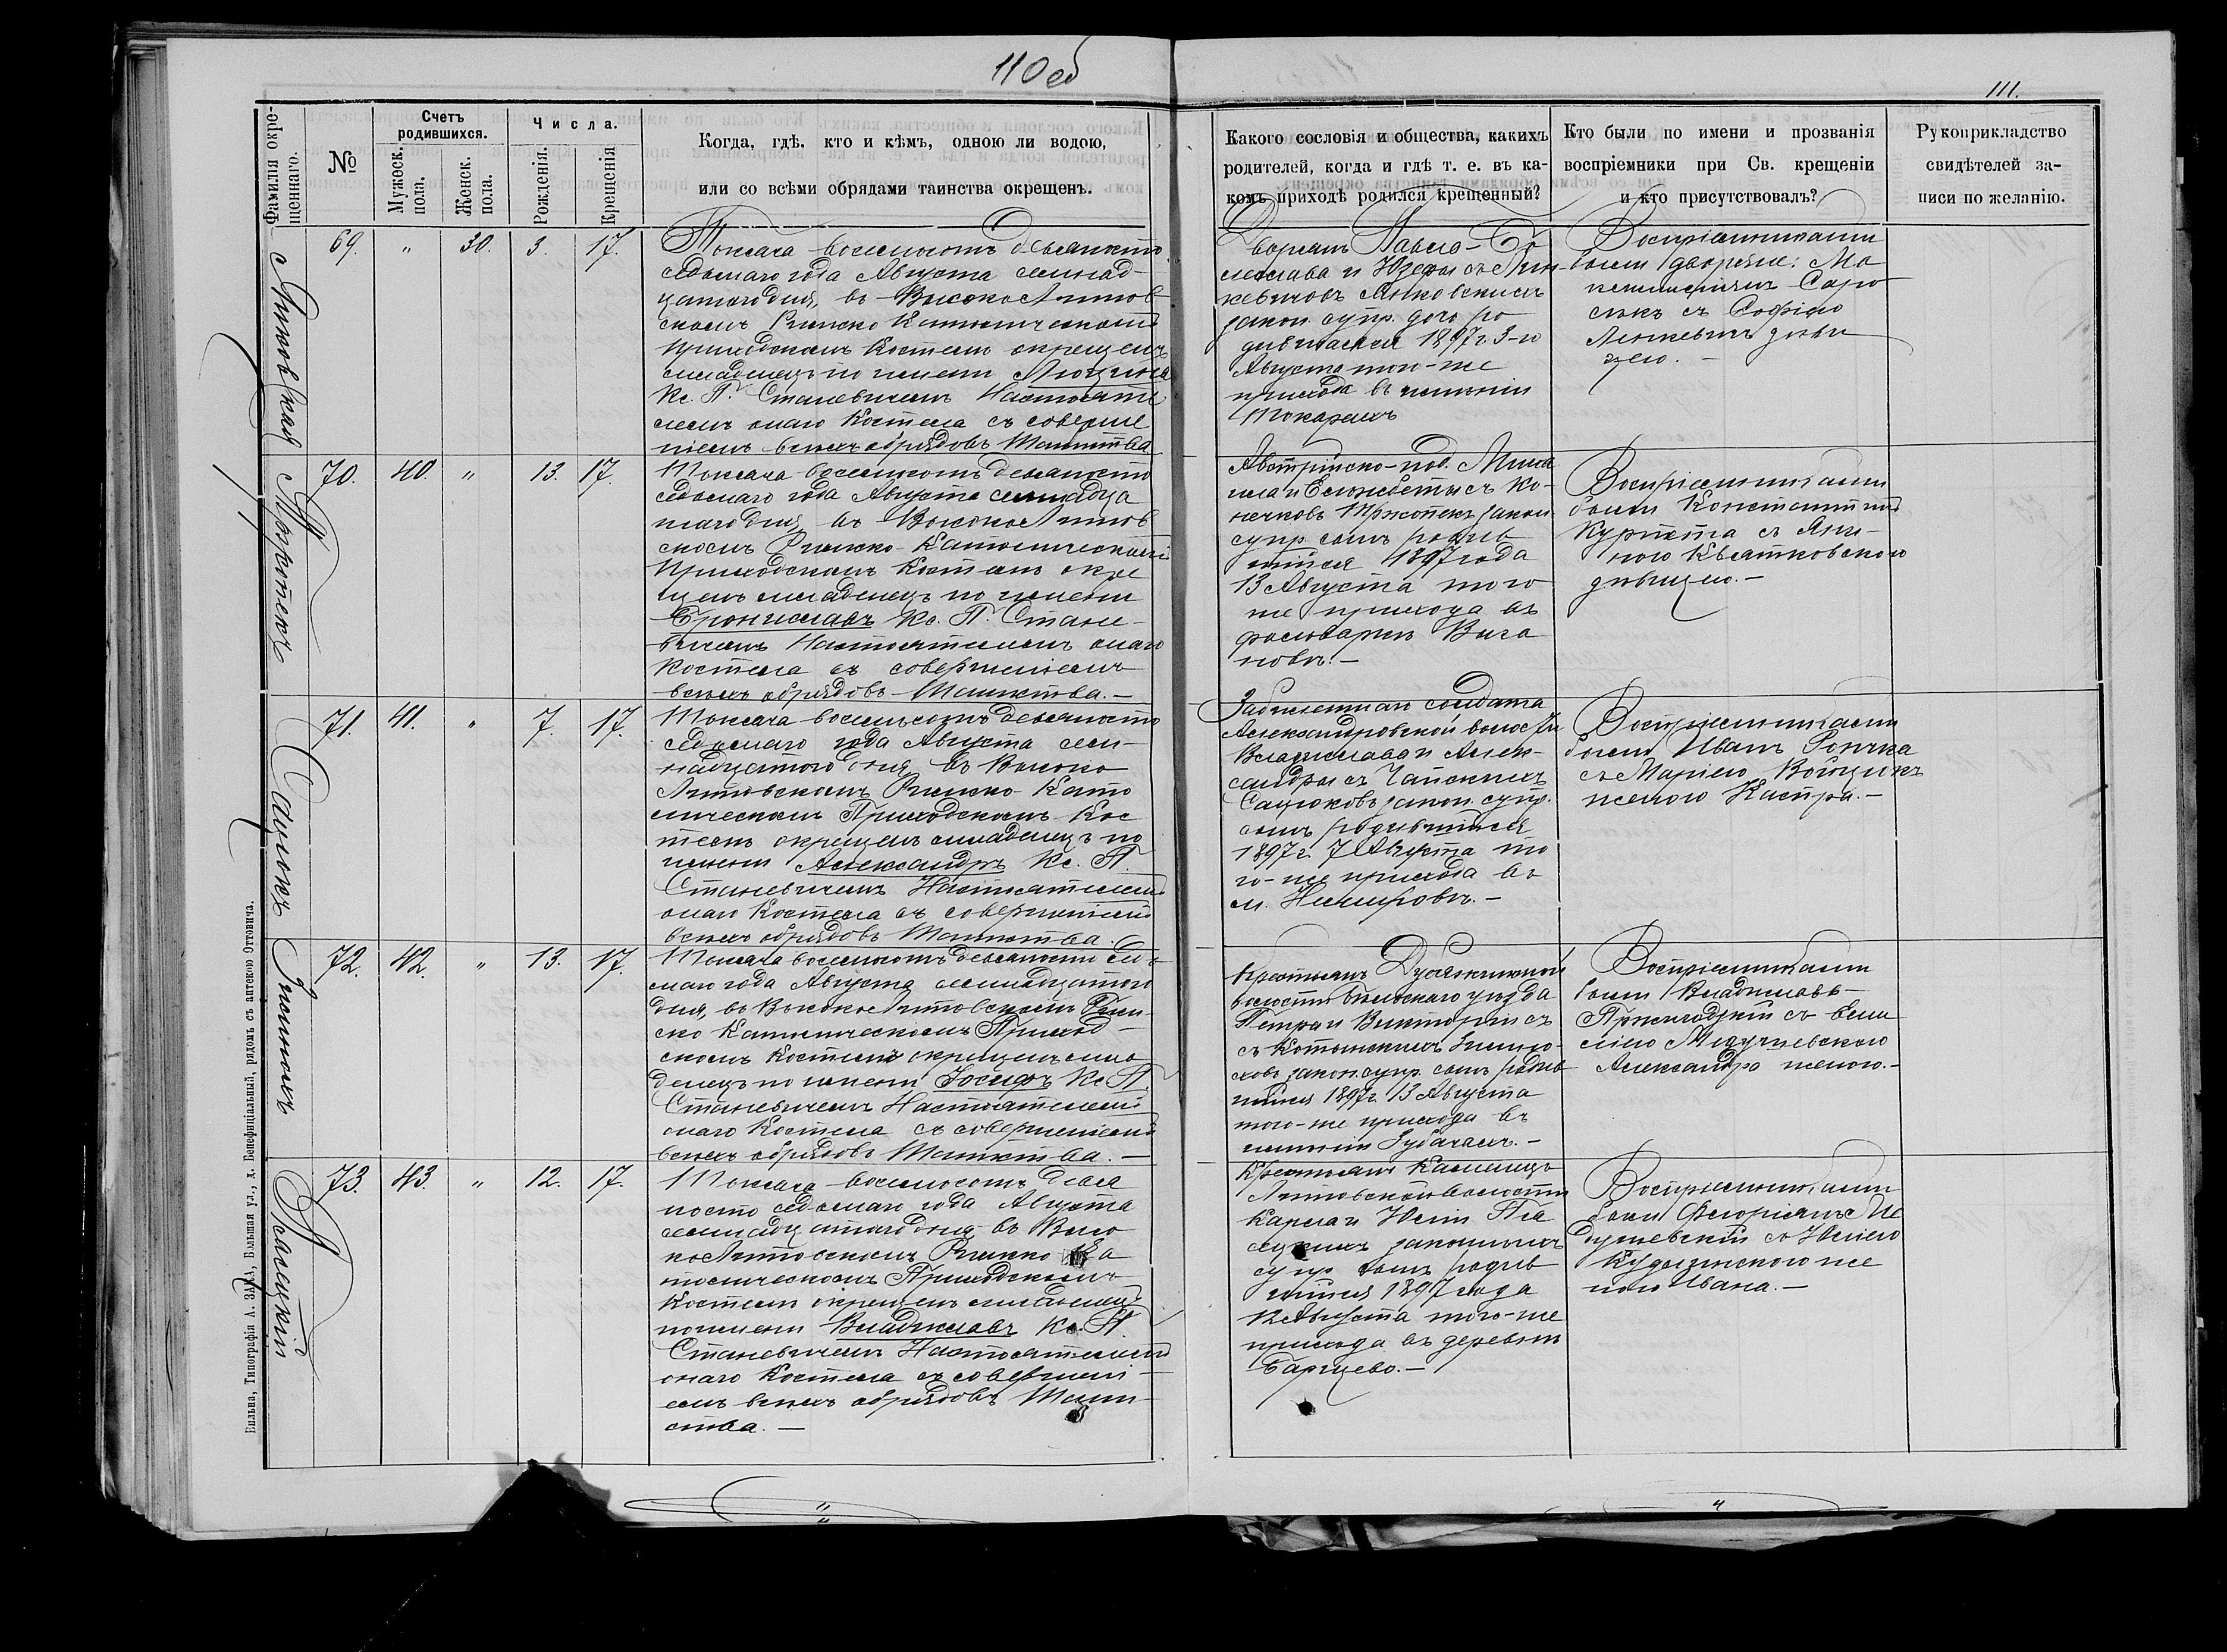 110 об
111.
Фамилія окре-
щеннаго.
№
Счетъ
родившихся.
Мужеск.
пола.
Женск.
пола.
Числа.
Рожденія.
Крещенія
Когда, гдѣ, кто и кѣмъ, одною ли водою,
или со всѣми обрядами таинства окрещенъ.
Какого сословія и общества, какихъ
родителей, когда и гдѣ т. е. въ ка-
комъ приходѣ родился крещенный?
Кто были по имени и прозванія
воспріемники при Св. крещеніи
и кто присутствовалъ?
Рукоприкладство
свидѣтелей за-
писи по желанію.
69. " 30. 3. 17.
Тысяча восемьсотъ девяносто
седьмаго года Августа семнад-
цатаго дня, въ Высоко Литов
скомъ Римско Католическомъ
Приходскомъ Костелѣ окрещенъ
младенецъ по имени Люцина
Кс. П. Станевичемъ Настояте
лемъ онаго Костела съ соверше
ніемъ всѣхъ обрядовъ Таинства
Дворянъ Павла-Бо
леслава и Юзефы съ Лин
кевичовъ
закон. супр. дочь ро
дившаяся 1897 г. 3-го
Августа того-же
прихода въ имѣніи
Токаряхъ
Воспріемниками
были дворяне: Ма
ксимиліанъ
съ Софіею
дѣви
цею. -
Трżотекъ
70. 40. " 13. 17.
Тысяча восемьсотъ девяносто
седьмаго года Августа семнадца
таго дня, въ Высоко Литов
скомъ Римско-Католическомъ
Приходскомъ Костелѣ окре
щенъ младенецъ по имени
Брониславъ Кс. П. Стане-
вичемъ Настоятелемъ онаго
Костела съ совершеніемъ
всѣхъ обрядовъ Таинства. -
Австрійско-под. Миха
ила и Елизаветы съ Ко-
нечковъ закон
супр. сынъ родив
шійся 1897 года
13 Августа того
же прихода въ
фольваркѣ Выга
новъ. -
Воспріемниками
были Константинъ
съ Яни-
ною Квятковскою
дѣвицею. -
Сацюкъ
71. 41. " 7. 17.
Тысяча восемьсотъ девяносто
седьмаго года Августа сем-
надцатаго дня, въ Высоко
Литовскомъ Римско-Като
лическомъ Приходскомъ Кос
телѣ окрещенъ младенецъ по
имени Александръ Кс. П.
Станевичемъ Настоятелемъ
онаго Костела съ совершеніемъ
всѣхъ обрядовъ Таинства.
солдата
Александровской волости
Владислава и Алек-
сандры съ Чапскихъ
Сацюковъ закон. супр.
сынъ родившійся
1897 г. 7 Августа то
го-же прихода въ
м. Немировъ. -
Воспріемниками
были Иванъ
съ Маріею Войцюкъ
женою Кастра. -
72. 42. " 13. 17.
Тысяча восемьсотъ девяносто седь
маго года Августа семнадцатаго
дня, въ Высоко Литовскомъ Рим-
ско Католическомъ Приход-
скомъ Костелѣ окрещенъ мла
денецъ по имени Іосифъ Кс. П.
Станевичемъ Настоятелемъ
онаго Костела съ совершеніемъ
всѣхъ обрядовъ Таинства. -
Крестьянъ
волости Бѣльскаго уѣзда
Петра и Викторіи съ
съ
закон. супр. сынъ родив
шійся 1897 г. 13 Августа
того-же прихода въ
имѣніи Зубачахъ. -
Воспріемниками
были Владиславъ
съ Еми
ліею
Александра женою. -
Пясецкій
73. 43. " 12. 17.
Тысяча восемьсотъ девя
носто седьмаго года Августа
семнадцатаго дня, въ Высо
ко Литовскомъ Римско Ка
толическомъ Приходскомъ
Костелѣ окрещенъ младенецъ
по имени Владиславъ Кс. П.
Станевичемъ Настоятелемъ
онаго Костела съ совершені-
емъ всѣхъ обрядовъ Таин-
ства. -
Крестьянъ Каменецъ
Литовской волости
Карла и Юліи Пя
сецкихъ законныхъ
супр. сынъ родив
шійся 1897 года
12 Августа того-же
прихода въ деревнѣ
Барщево. -
Воспріемниками
были Флоріанъ Ме
душевскій съ Юліею
же
ною Ивана. -
Вильна, Типографія А. ЗАКА, Большая ул., д. Бенефиціальный, рядомъ съ аптекою Оттовича.